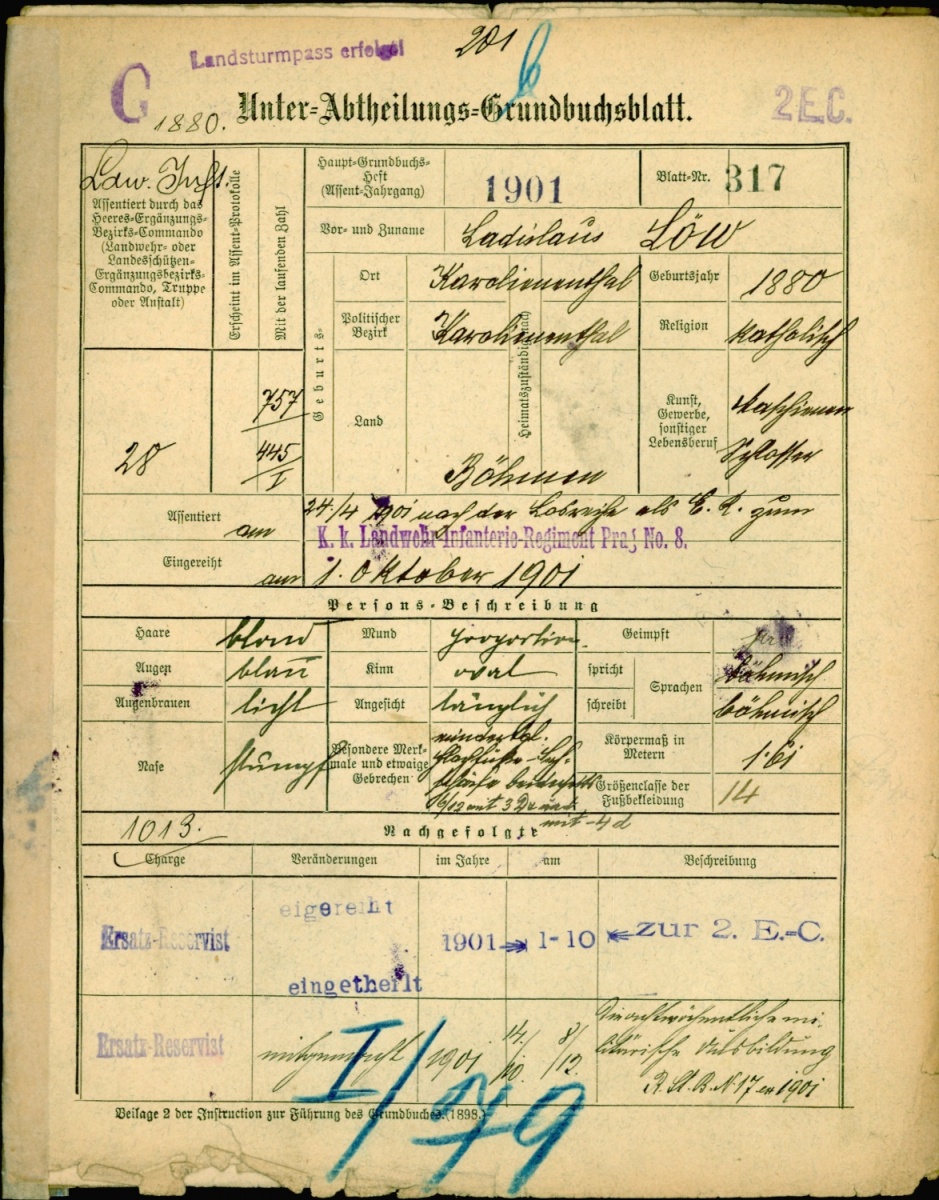 Landsturmpass erfolgt!
201
b
G
1880.
Unter-Abtheilungs-Grundbuchsblatt.
2 E.C.
Ldw. Inft.
Assentiert durch das Heeres-Ergänzungs-Bezirks-Commando (Landwehr- oder Landesschützen-Ergänzungsbezirks-Commando, Truppe oder Anstalt)
Erscheint im Assent-Protokolle
Mit der laufenden Zahl
Haupt-Grundbuchs-Heft (Assent-Jahrgang)
1901
Blatt-Nr. 317
Vor- und Zuname
Ladislaus Löw
Geburts-
Ort
Karolinenthal
Geburtsjahr
1880
Politischer Bezirk
Karolinenthal
Heimatszuständig nach
Religion
katholisch
28
757
445
I
Land
Böhmen
Kunst, Gewerbe, sonstiger Lebensberuf
Maschinen
Schlosser
Assentiert
am
24./4 1901 nach der Losreihe als E. R. zum
K. k. Landwehr-Infanterie-Regiment Prag No. 8.
Eingereiht
am 1. Oktober 1901
Persons-Beschreibung
Haare
blond
Mund
proportion.
Geimpft
Augen
blau
Kinn
oval
spricht
Sprachen
böhmisch
Augenbrauen
licht
Angesicht
länglich
schreibt
böhmisch
Nase
stumpf
Besondere Merkmale und etwaige Gebrechen
Körpermaß in Metern
1·61
Größenclasse der Fußbekleidung
14
mit 4 d
1013.
Nachgefolgte
Charge
Veränderungen
im Jahre
am
Beschreibung
Ersatz-Reservist
eigereiht
eingetheilt
1901
1-10
zur 2. E.-C.
Ersatz-Reservist
mitgemacht
1901
14./10.
8/12.
Die achtwöchentliche mi-
litärische Ausbildung
R. St. B. N. 17 ex 1901
I/79
Beilage 2 der Instruction zur Führung des Grundbuches. (1898.)